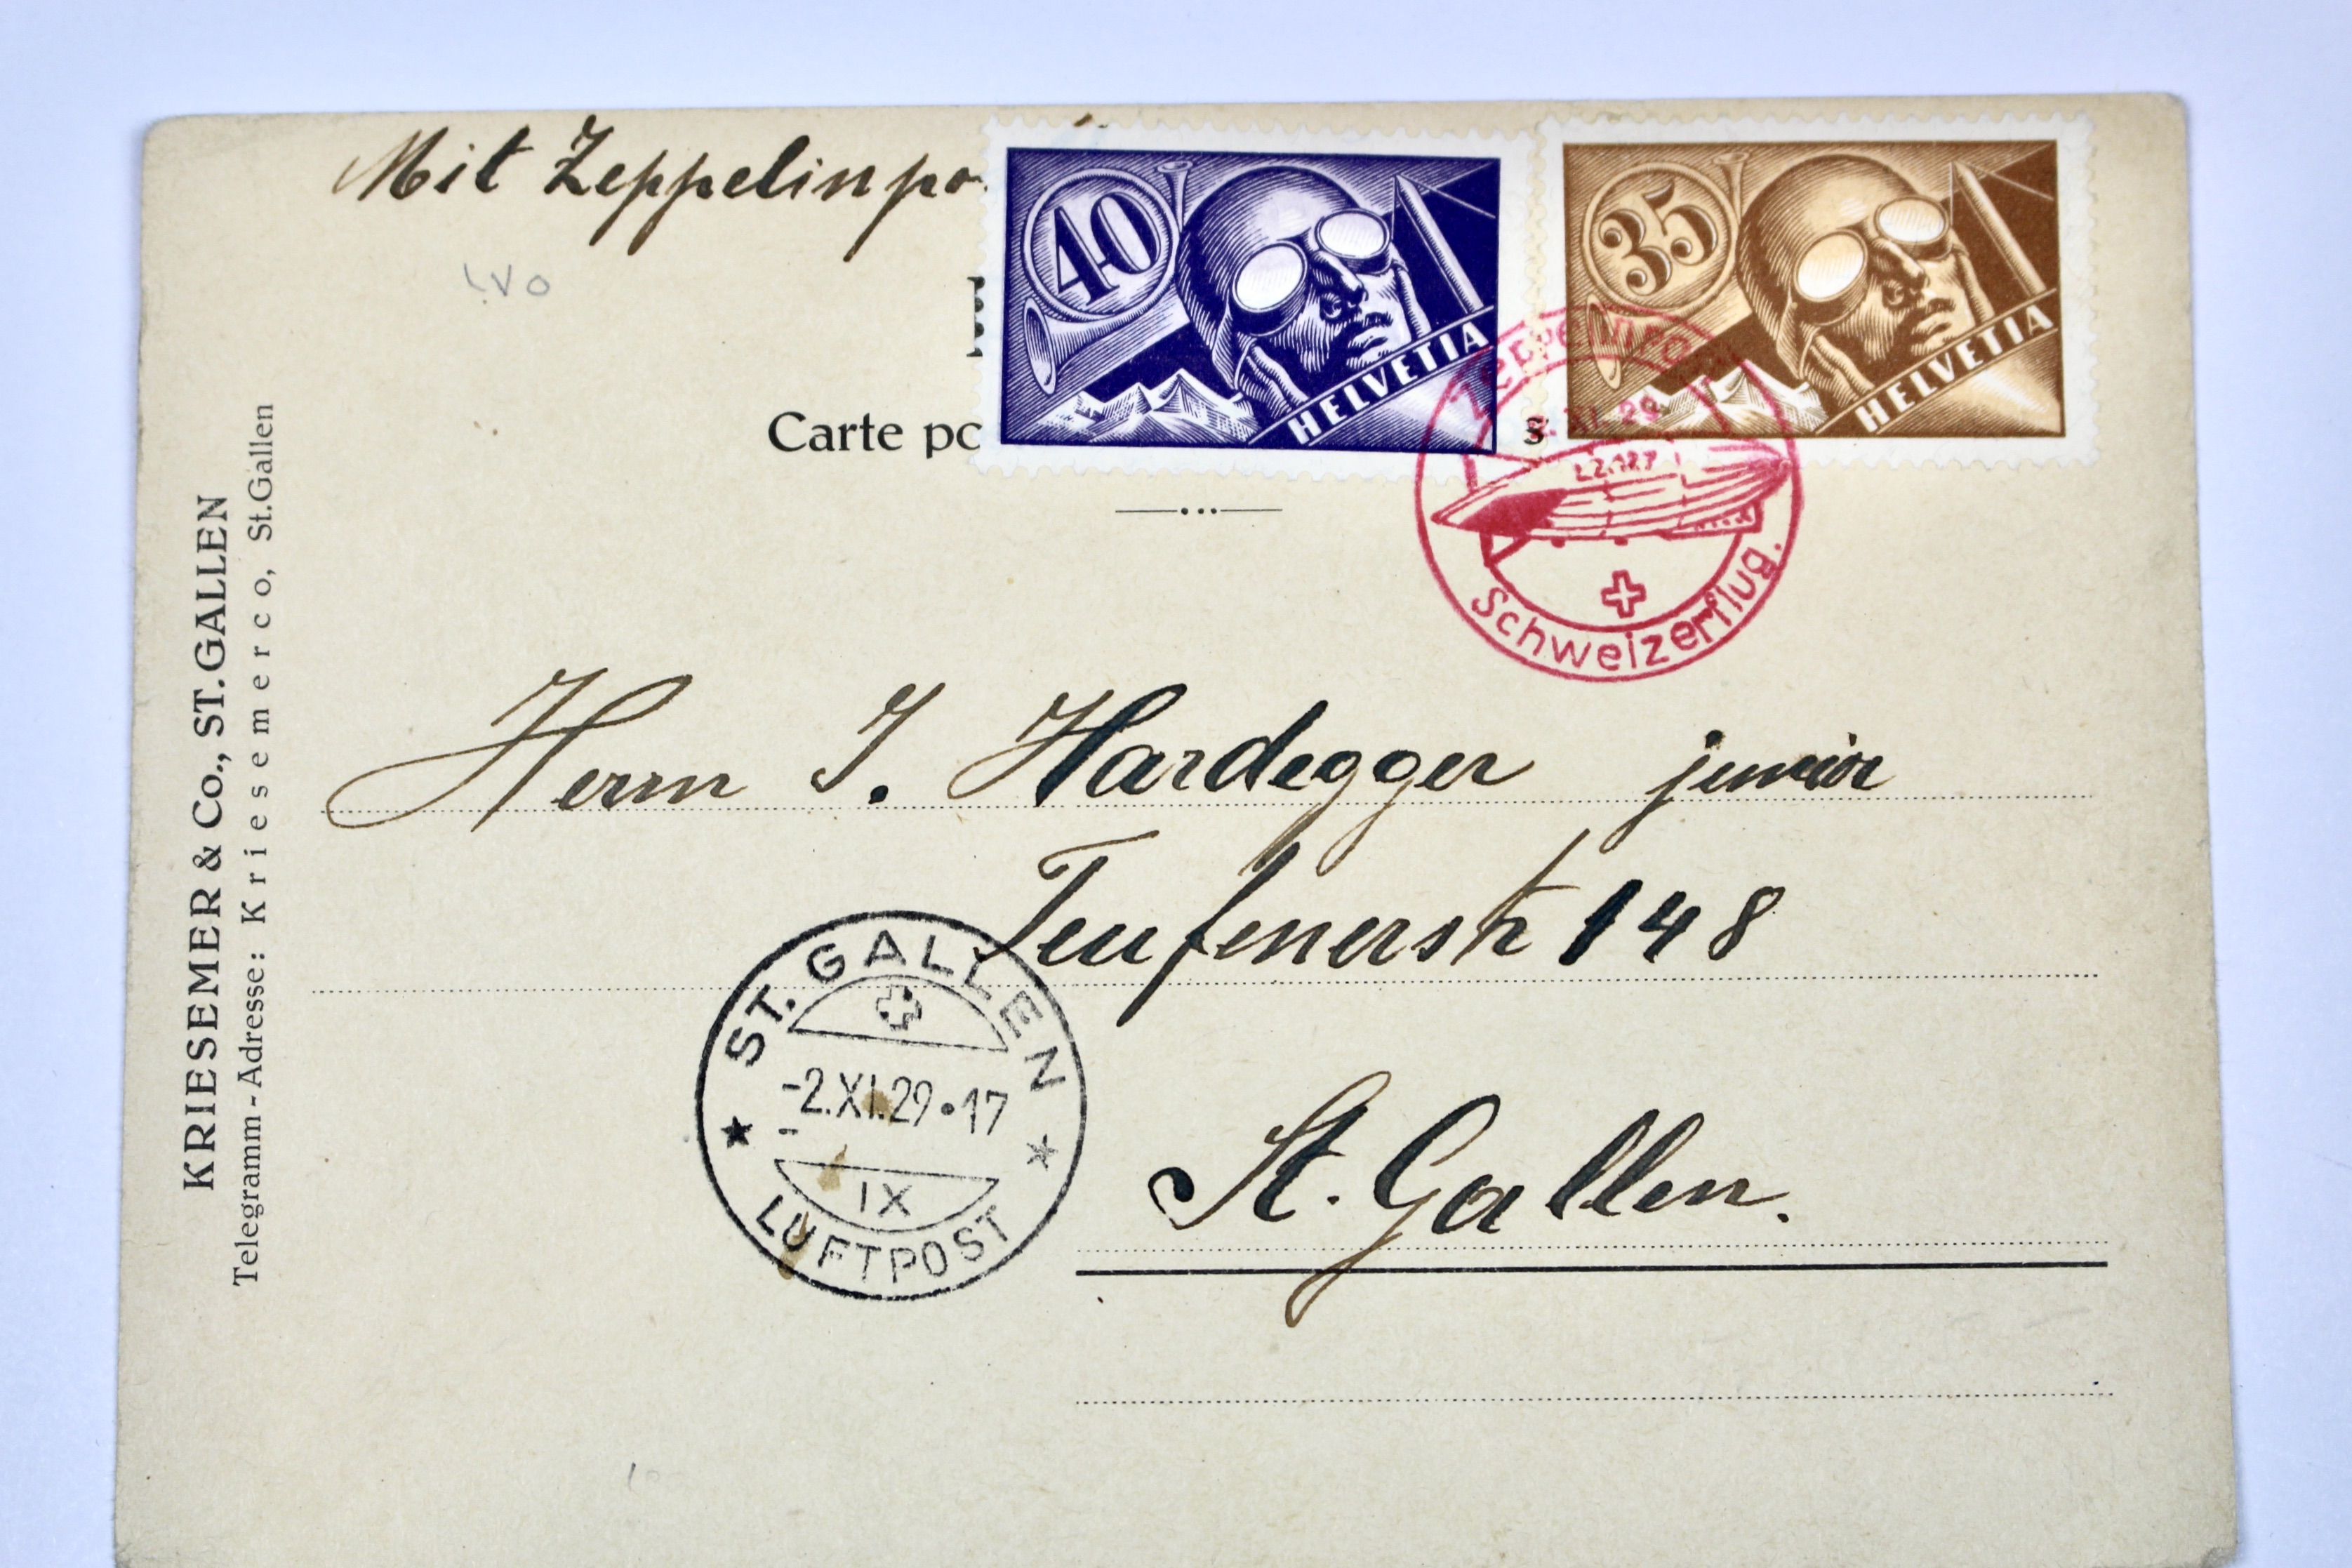 Mit Zeppelinpo
40
HELVETIA
35
HELVETIA
Carte po
s
Zeppelinpo
XI. 29
LZ.127
Schweizerflug.
KRIESEMER & Co., ST. GALLEN
Telegramm-Adresse: Kriesemerco, St.Gallen
Herrn J. Hardegger junior
Teufenerstr 148
St. Gallen.
ST. GALLEN
-2.XI.29•17
IX
LUFTPOST